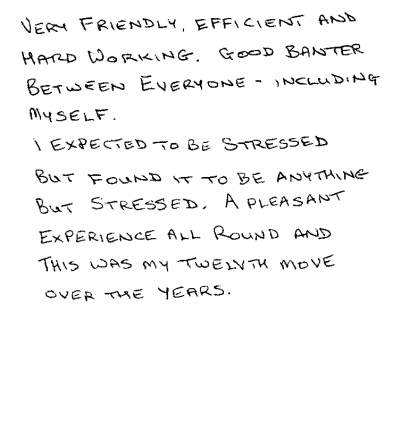 VERY FRIENDLY, EFFICIENT AND
HARD WORKING. GOOD BANTER
BETWEEN EVERYONE - INCLUDING
MYSELF.
I EXPECTED TO BE STRESSED
BUT FOUND IT TO BE ANYTHING
BUT STRESSED. A PLEASANT
EXPERIENCE ALL ROUND AND
THIS WAS MY TWELVTH MOVE
OVER THE YEARS.